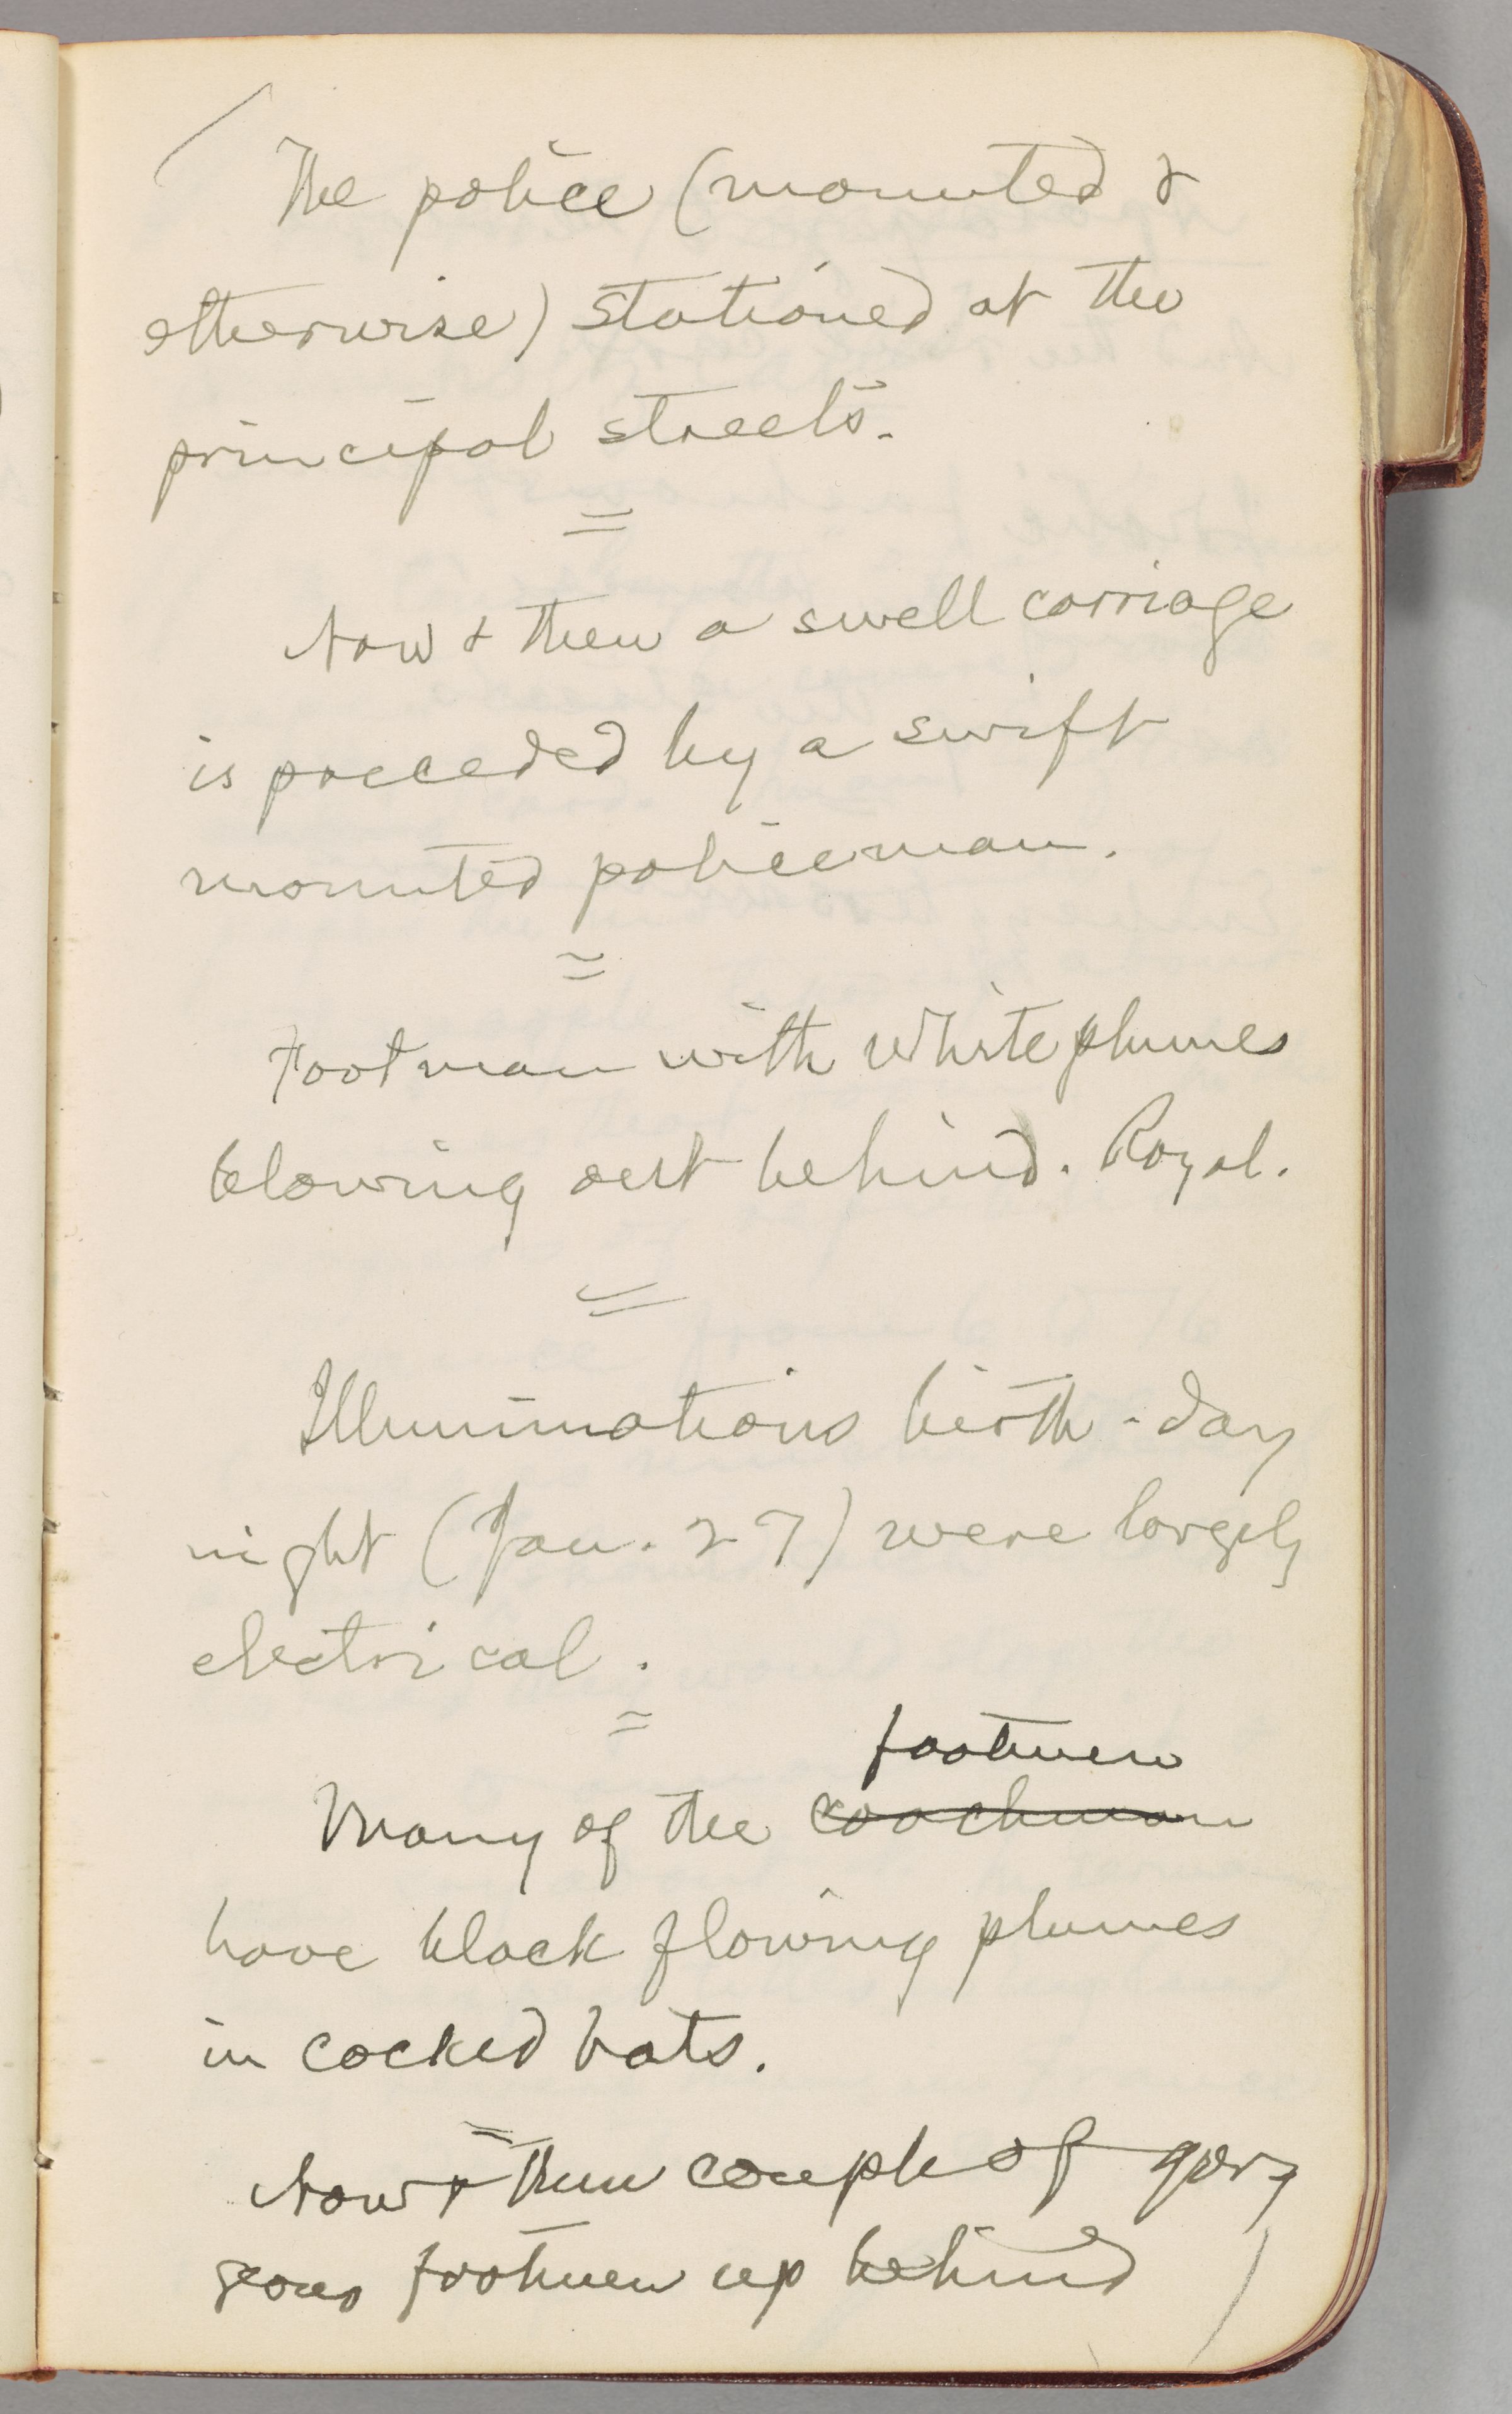 The police (mounted &
otherwise) stationed at the
principal streets.
=
Now & then a swell carriage
is preceded by a swift
mounted policeman.
=
Footman with white plumes
blowing out behind. Royal.
=
Illuminations birth-day
night (Jan. 27) were largely
electrical.
=
footmen
Many of the coachman
have black flowing plumes
in cocked hats.
=
Now & then couple of gor-
geous footmen up behind